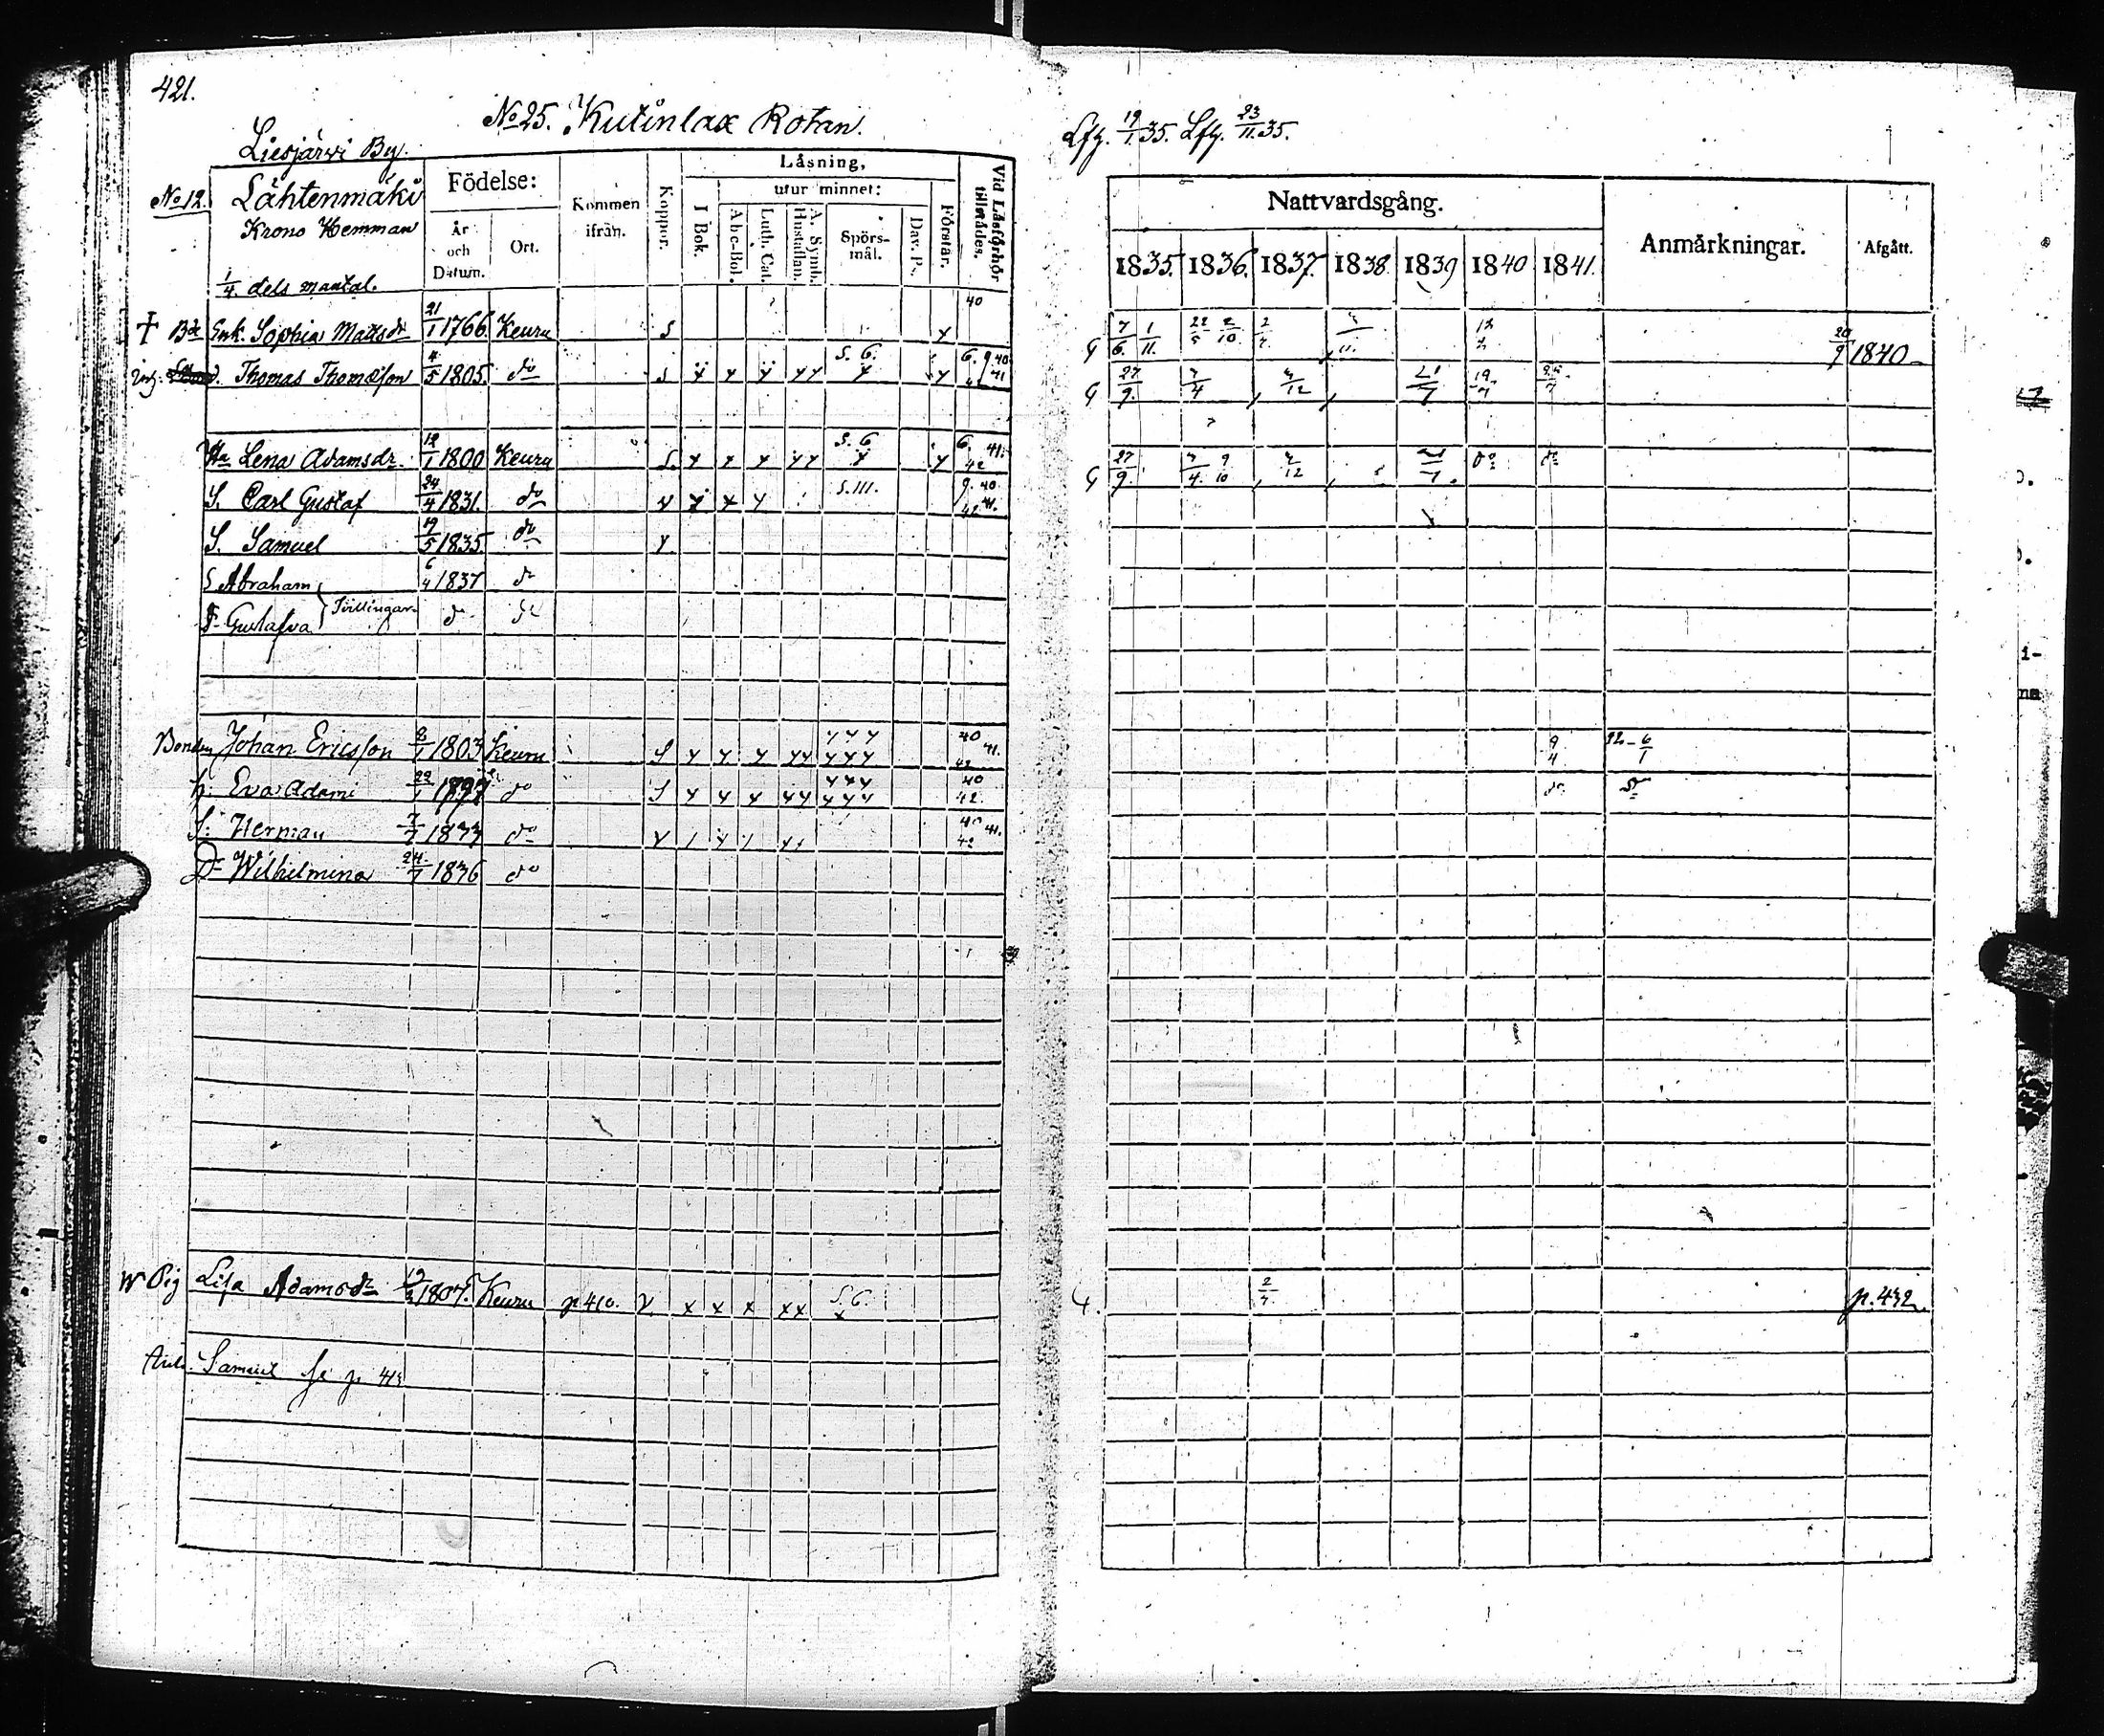 421.
No 25. Kutinlax Rotan.
Liesjärvi By.
No 12. Lähtenmäki
Krono Hemman
1/4 dels mantal.
Födelse:
År och Datum.
Ort.
Kommen ifrån.
Koppor.
Läsning,
utur minnet:
I Bok.
Abc-Bok.
Luth. Cat.
A. Symb. Hustaflan.
Spörsmål.
Dav. Ps.
Förstår.
Vid Läsförhör tillstädes.
40
† Bde Enk. Sophia Mattsdr 21/1 1766. Keuru S y
Thomas Thomasson 4/5 1805. do S y y y yy S. G. y y 6. 9 40 41
Hu Lena Adamsdr 19/1 1800 Keuru S. y y y yy S. G. y y 6. 41. 42
S. Carl Gustaf 24/4 1831. do v y y y S. III. 9. 40 41. 42
S. Samuel 19/5 1835 do y
S Abraham } Tvillingar 6/4 1837 do
D Gustafva do do
Bonden Johan Ericsson 8/1 1803 Keuru S y y y yy yyy yyy 40 41. 42
h: Eva Adami 29/1 1797 do S y y y yy yyy yyy 40 42.
S: Herman 7/7 1833 do y / y / yy 40 41. 42
Dr Wilhelmina 24/7 1836 do
W Pig Lisa Adamsdr 19/3 1807. Keuru p 410. v x x x xx S. G. x
Samuel se p
Lfg. 19/1 35. Lfg. 23/11. 35.
Nattvardsgång.
Anmärkningar.
Afgått.
1835. 1836. 1837. 1838. 1839 1840 1841.
G 7/6. 1/11. 22/5 2/10 20/9 1840
G 27/9. 7/4 7/12 21/7 19/7
G 27/9. 7/4. 9/10 7/12 do do
9/4 42 - 6/1
do do
G. 2/7 p. 432.